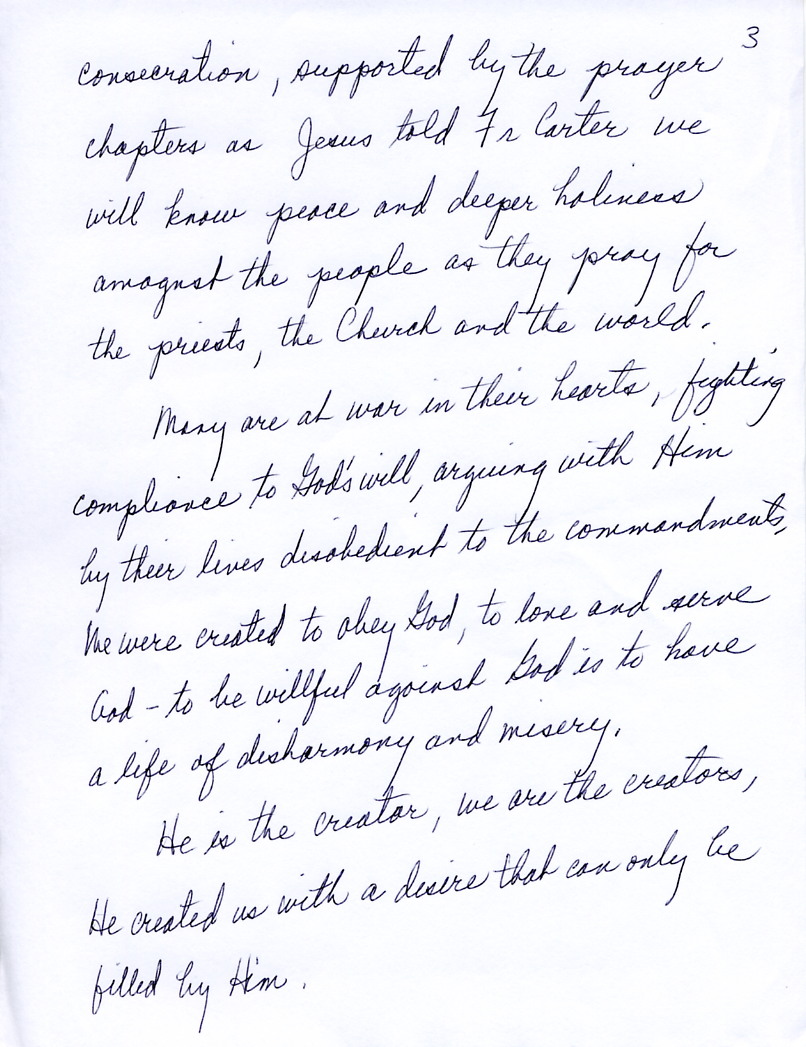 3
consecration, supported by the prayer
chapters as Jesus told Fr Carter we
will know peace and deeper holiness
amognst the people as they pray for
the priests, the Church and the world.
Many are at war in their hearts, fighting
compliance to God's will, arguing with Him
by their lives disobedient to the commandments,
We were created to obey God, to love and serve
God - to be willful against God is to have
a life of disharmony and misery.
He is the creator, we are the creators,
He created us with a desire that can only be
filled by Him.